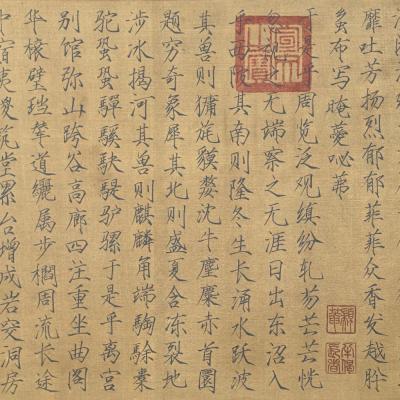 靡吐芳扬烈郁郁菲菲众香发越肸
布写晻薆咇茀
于是乎周览泛观缜纷轧芴芒芒恍
忽视之无端察之无涯日出东沼入
乎西陂其南则隆冬生长涌水跃波
其兽则旄貘沈牛麈麋赤首圜
题穷奇象犀其北则盛夏含冻裂地
涉冰揭河其兽则麒麟角端騊駼橐
驼蛩蛩驒騱駃騠驴骡于是乎离宫
别馆弥山跨谷高廊四注重坐曲阁
华榱璧珰辇道纚属步櫩周流长途
中宿夷嵕筑堂累台增成岩突洞房